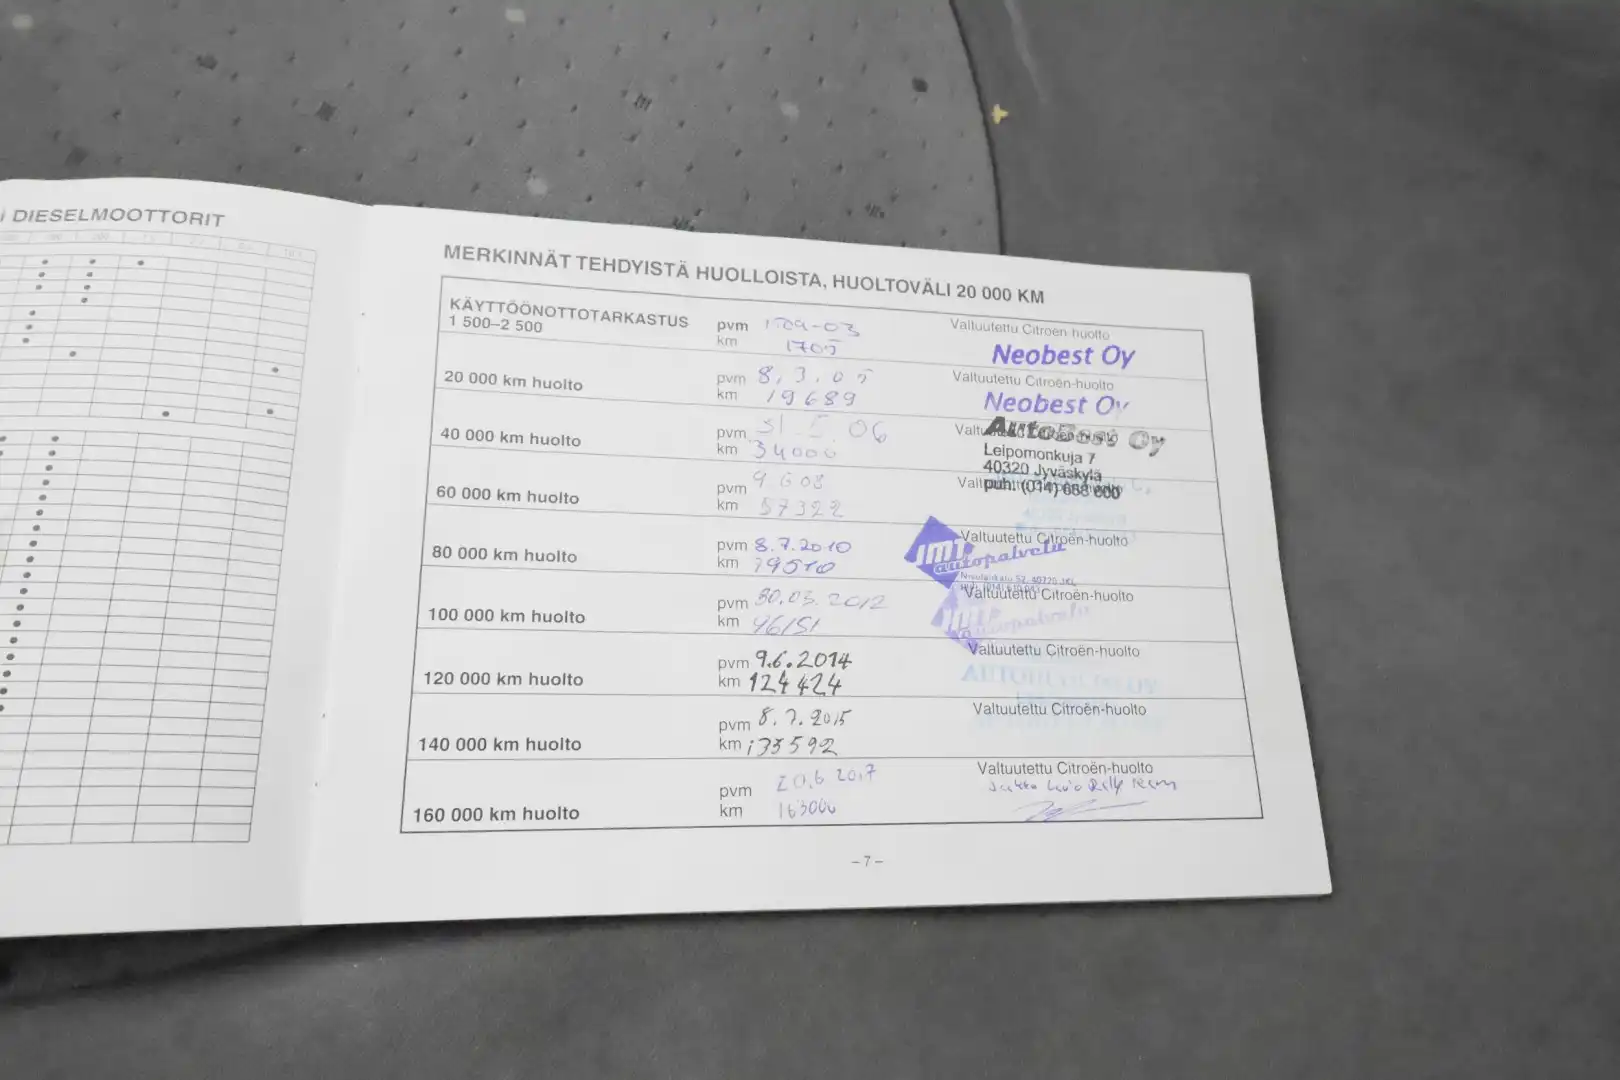 DIESELMOOTTORIT
MERKINNÄT TEHDYISTÄ HUOLLOISTA, HUOLTOVÄLI 20 000 KM
KÄYTTÖÖNOTTOTARKASTUS
1 500–2 500
pvm
km 1705
Valtuutettu Citroën huolto
Neobest Oy
20 000 km huolto
pvm 8.3.05
km 19689
Valtuutettu Citroën-huolto
Neobest Oy
40 000 km huolto
pvm 31.5.06
km 34000
AutoBest Oy
Leipomonkuja 7
40320 Jyväskylä
puh. (014) 688 600
60 000 km huolto
pvm 9 6 08
km 57322
80 000 km huolto
pvm 8.7.2010
km 79510
Valtuutettu Citroën-huolto
JMT
autopalvelu
100 000 km huolto
pvm 30.03.2012
km 96151
Valtuutettu Citroën-huolto
autopalvelu
120 000 km huolto
pvm 9.6.2014
km 124424
Valtuutettu Citroën-huolto
140 000 km huolto
pvm 8.7.2015
km 135592
Valtuutettu Citroën-huolto
160 000 km huolto
pvm 20.6 2017
km 163000
Valtuutettu Citroën-huolto
–7–